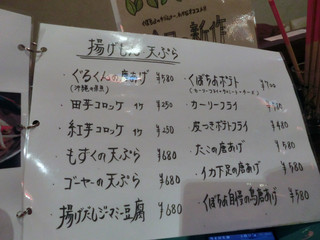 揚げもん 天ぷら
・ぐるくんの唐あげ ¥580
(沖縄の県魚)
・田芋コロッケ 1ケ ¥250
・紅芋コロッケ 1ケ ¥250
・もずくの天ぷら ¥680
・ゴーヤーの天ぷら ¥680
・揚げだしジーマミー豆腐 ¥680
・くばちゃポテト ¥700
・カーリーフライ
・皮つきポテトフライ ¥480
・たこの唐あげ ¥580
・イカ下足の唐あげ ¥580
・くばちゃ自慢の鳥唐あげ ¥580